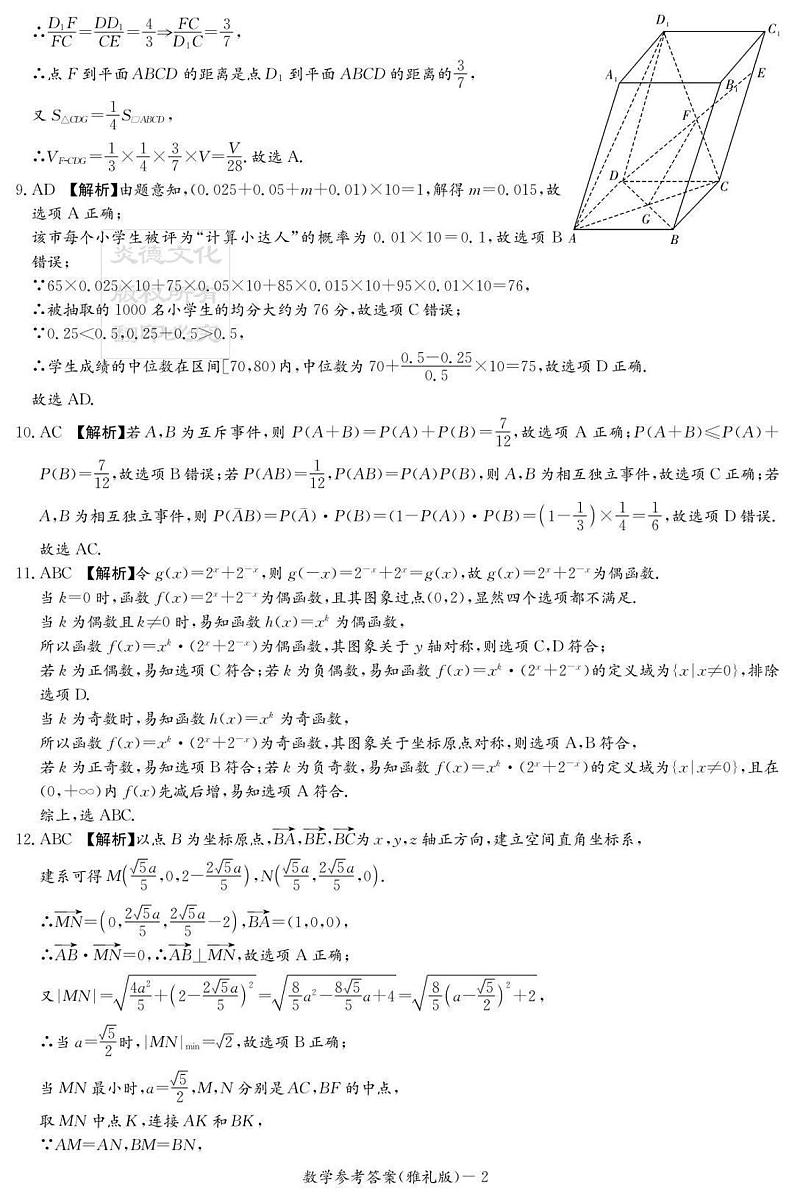 ∴D₁F/FC=DD₁/CE=4/3⇒FC/D₁C=3/7,
∴点 F 到平面 ABCD 的距离是点 D₁ 到平面 ABCD 的距离的3/7,
又 S△CDG=1/4 S▱ABCD,
∴V_{F-CDG}=1/3×1/4×3/7×V=V/28. 故选 A.
D₁
C₁
A₁
B₁
E
F
D
C
G
A
B
9. AD 【解析】由题意知,(0.025+0.05+m+0.01)×10=1,解得 m=0.015,故
选项 A 正确;
该市每个小学生被评为“计算小达人”的概率为 0.01×10=0.1,故选项 B
错误;
∵65×0.025×10+75×0.05×10+85×0.015×10+95×0.01×10=76,
∴被抽取的 1000 名小学生的均分大约为 76 分,故选项 C 错误;
∵0.25<0.5,0.25+0.5>0.5,
∴学生成绩的中位数在区间[70,80)内,中位数为 70+(0.5-0.25)/0.5×10=75,故选项 D 正确.
故选 AD.
炎德文化
版权所有
10. AC 【解析】若 A,B 为互斥事件,则 P(A+B)=P(A)+P(B)=7/12,故选项 A 正确;P(A+B)≤P(A)+
P(B)=7/12,故选项 B 错误;若 P(AB)=1/12,P(AB)=P(A)P(B),则 A,B 为相互独立事件,故选项 C 正确;若
A,B 为相互独立事件,则 P(ĀB)=P(Ā)·P(B)=(1-P(A))·P(B)=(1-1/3)×1/4=1/6,故选项 D 错误.
故选 AC.
11. ABC 【解析】令 g(x)=2ˣ+2⁻ˣ,则 g(-x)=2⁻ˣ+2ˣ=g(x),故 g(x)=2ˣ+2⁻ˣ为偶函数.
当 k=0 时,函数 f(x)=2ˣ+2⁻ˣ为偶函数,且其图象过点(0,2),显然四个选项都不满足.
当 k 为偶数且 k≠0 时,易知函数 h(x)=xᵏ 为偶函数,
所以函数 f(x)=xᵏ·(2ˣ+2⁻ˣ)为偶函数,其图象关于 y 轴对称,则选项 C,D 符合;
若 k 为正偶数,易知选项 C 符合;若 k 为负偶数,易知函数 f(x)=xᵏ·(2ˣ+2⁻ˣ)的定义域为{x|x≠0},排除
选项 D.
当 k 为奇数时,易知函数 h(x)=xᵏ 为奇函数,
所以函数 f(x)=xᵏ·(2ˣ+2⁻ˣ)为奇函数,其图象关于坐标原点对称,则选项 A,B 符合,
若 k 为正奇数,易知选项 B 符合;若 k 为负奇数,易知函数 f(x)=xᵏ·(2ˣ+2⁻ˣ)的定义域为{x|x≠0},且在
(0,+∞)内 f(x)先减后增,易知选项 A 符合.
综上,选 ABC.
12. ABC 【解析】以点 B 为坐标原点,BA→,BE→,BC→为 x,y,z 轴正方向,建立空间直角坐标系,
建系可得 M(√5a/5,0,2-2√5a/5),N(√5a/5,2√5a/5,0).
∴MN→=(0,2√5a/5,2√5a/5-2),BA→=(1,0,0),
∴AB→·MN→=0,∴AB→⊥MN→,故选项 A 正确;
又|MN|=√(4a²/5+(2-2√5a/5)²)=√(8/5a²-8√5/5a+4)=√(8/5(a-√5/2)²+2),
∴当 a=√5/2时,|MN|min=√2,故选项 B 正确;
当 MN 最小时,a=√5/2,M,N 分别是 AC,BF 的中点,
取 MN 中点 K,连接 AK 和 BK,
∵AM=AN,BM=BN,
数学参考答案(雅礼版)-2